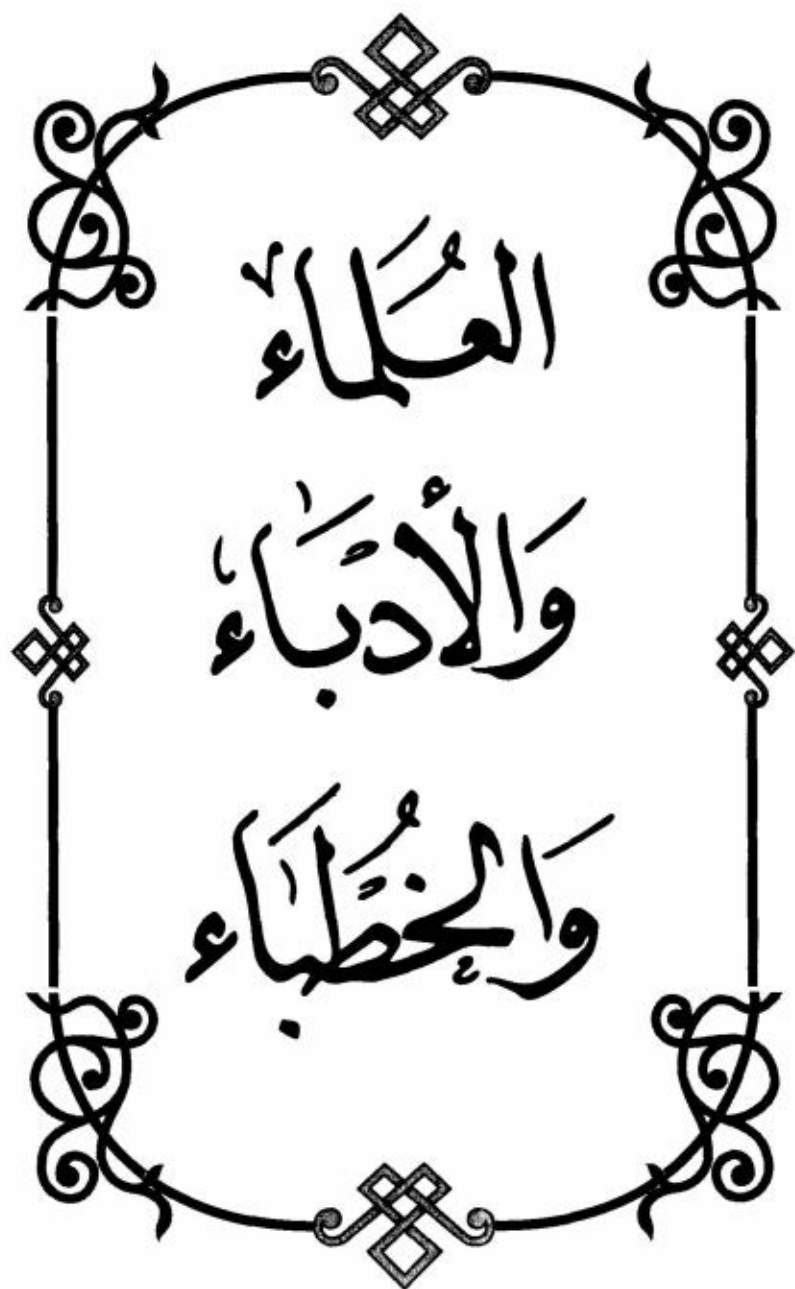 العُلَماء
وَالأدَباء
وَالخُطَباء